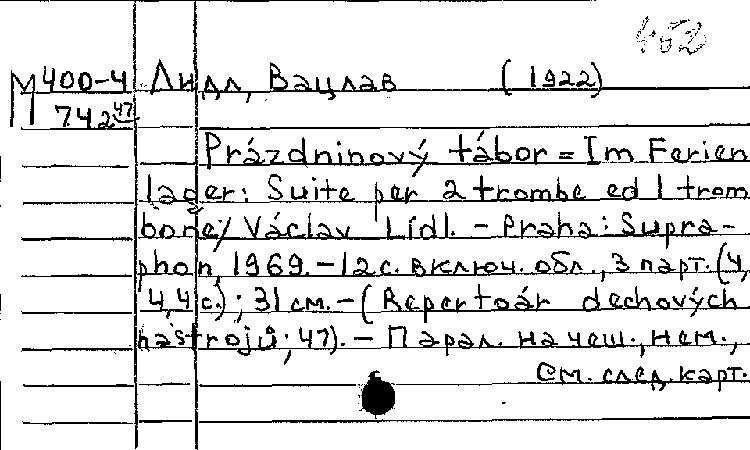 452
М 400-4 Лидл, Вацлав (1922)
742 47
Prázdninový tábor = Im Ferien
lager: Suite per 2 trombe ed 1 trom
bone / Václav Lídl. - Praha: Supra-
phon, 1969. - 12 с. включ. обл., 3 парт. (4,
4, 4 с.); 31 см. - (Repertoár dechových
nástrojů; 47). - Парал. на чеш., нем.,
См. след. карт.